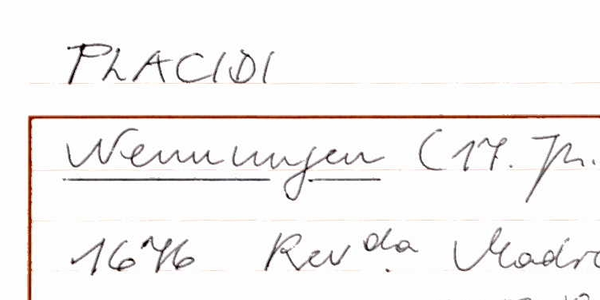 PLACIDI
Nennungen (17. Jh.
1676 Rev.da Madre